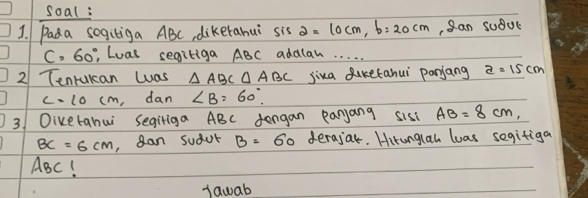 Soal :
1. Pada segitiga ABC, diketahui sisi a = 10 cm, b = 20 cm, dan sudut
C = 60°, Luas segitiga ABC adalah .....
2 Tentukan luas △ ABC △ ABC jika diketahui panjang a = 15 cm
c = 10 cm, dan ∠B = 60°.
3. Diketahui segitiga ABC dengan panjang sisi AB = 8 cm,
BC = 6 cm, dan sudut B = 60 derajat. Hitunglah luas segitiga
ABC !
Jawab